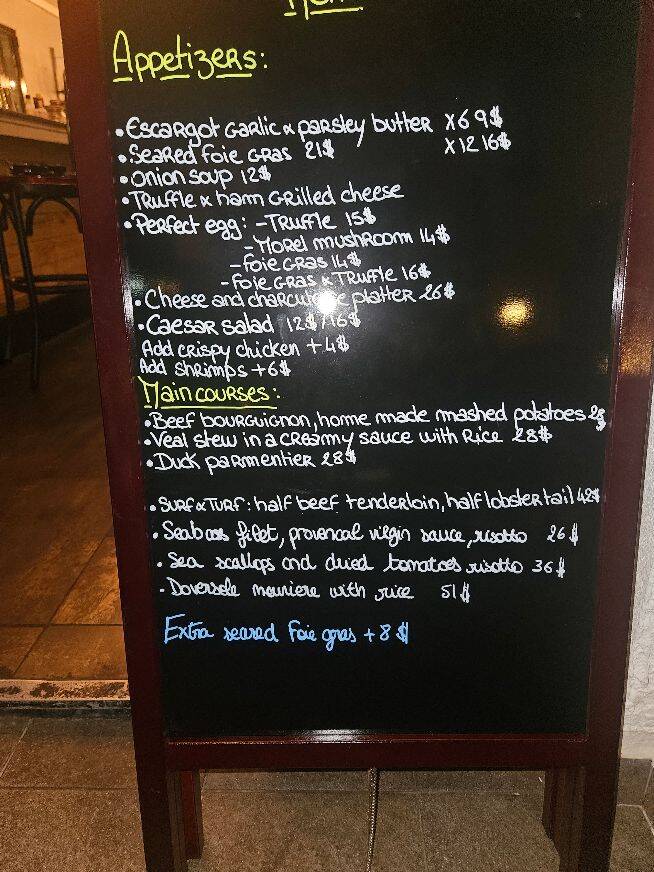 Menu
Appetizers:
• Escargot Garlic & parsley butter x6 9$
• Seared foie Gras 21$ x12 16$
• Onion soup 12$
• Truffle & ham Grilled cheese
• Perfect egg: - Truffle 15$
- Morel mushroom 14$
- foie Gras 14$
- foie Gras & Truffle 16$
• Cheese and charcuterie platter 26$
• Caesar salad 12$/16$
Add crispy chicken +4$
Add shrimps +6$
Main courses:
• Beef bourguignon, home made mashed potatoes 28
• Veal stew in a creamy sauce with Rice 28$
• Duck parmentier 28$
• Surf & Turf: half beef tenderloin, half lobster tail 42$
• Seabass filet, provencal virgin sauce, risotto 26$
• Sea scallops and dried tomatoes risotto 36$
• Doversole meuniere with rice 51$
Extra seared Foie gras +8$